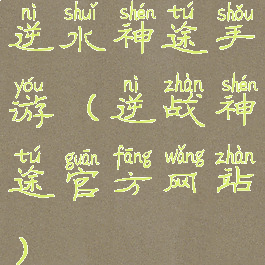 nì shuǐ shén tú shǒu
逆水神途手
yóu nì zhàn shén
游(逆战神
tú guān fāng wǎng zhàn
途官方网站
)